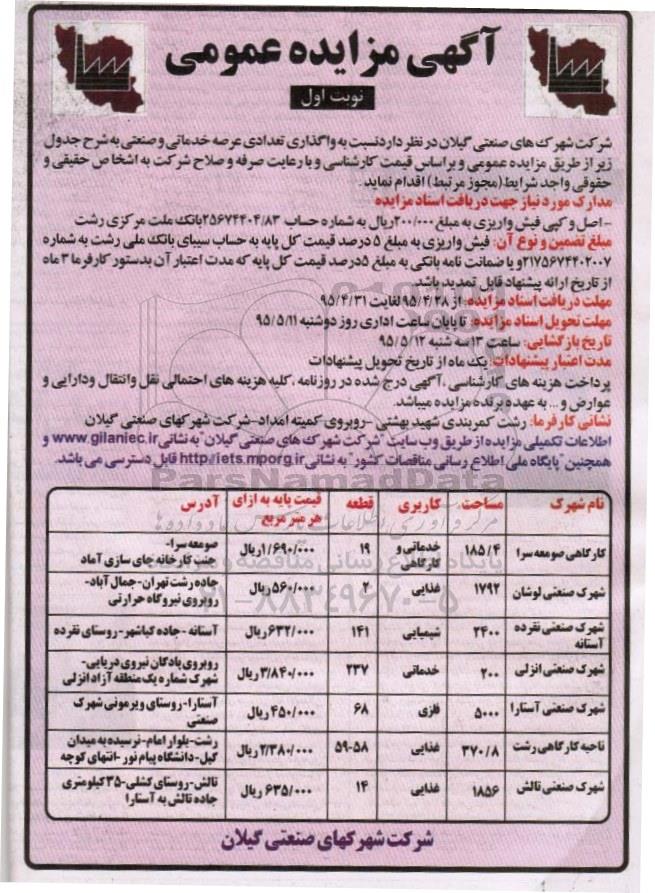 آگهی مزایده عمومی
نوبت اول
شرکت شهرک های صنعتی گیلان در نظر دارد نسبت به واگذاری تعدادی عرصه خدماتی و صنعتی به شرح جدول
زیر از طریق مزایده عمومی و براساس قیمت کارشناسی و با رعایت صرفه و صلاح شرکت به اشخاص حقیقی و
حقوقی واجد شرایط (مجوز مرتبط) اقدام نماید.
مدارک مورد نیاز جهت دریافت اسناد مزایده
-اصل و کپی فیش واریزی به مبلغ ۲۰۰/۰۰۰ریال به شماره حساب ۲۵۶۷۴۴۰۴/۸۳بانک ملت مرکزی رشت
مبلغ تضمین و نوع آن: فیش واریزی به مبلغ ۵ درصد قیمت کل پایه به حساب سیبای بانک ملی رشت به شماره
۲۱۷۵۶۷۴۴۰۲۰۰۷و یا ضمانت نامه بانکی به مبلغ ۵درصد قیمت کل پایه که مدت اعتبار آن بدستور کارفرما ۳ ماه
از تاریخ ارائه پیشنهاد قابل تمدید باشد.
مهلت دریافت اسناد مزایده: از ۹۵/۴/۲۸ لغایت ۹۵/۴/۳۱
مهلت تحویل اسناد مزایده: تا پایان ساعت اداری روز دوشنبه ۹۵/۵/۱۱
تاریخ بازگشایی: ساعت ۱۳ سه شنبه ۹۵/۵/۱۲
مدت اعتبار پیشنهادات: یک ماه از تاریخ تحویل پیشنهادات
پرداخت هزینه های کارشناسی ،آگهی درج شده در روزنامه ،کلیه هزینه های احتمالی نقل وانتقال ودارایی و
عوارض و... به عهده برنده مزایده میباشد.
نشانی کارفرما: رشت کمربندی شهید بهشتی -روبروی کمیته امداد-شرکت شهرکهای صنعتی گیلان
اطلاعات تکمیلی مزایده از طریق وب سایت "شرکت شهرک های صنعتی گیلان"به نشانی www.gilaniec.ir و
همچنین "پایگاه ملی اطلاع رسانی مناقصات کشور" به نشانی http://iets.mporg.ir قابل دسترسی می باشد.
ParsNamadData
۰۲۱-۸۸۳۴۹۶۷۰-۵
نام شهرک مساحت کاربری قطعه قیمت پایه به ازای هر متر مربع آدرس
کارگاهی صومعه سرا ۱۸۵/۴ خدماتی و کارگاهی ۱۹ ۱/۶۹۰/۰۰۰ریال صومعه سرا- جنب کارخانه چای سازی آماد
شهرک صنعتی لوشان ۱۷۹۲ غذایی ۲ ۵۶۰/۰۰۰ریال جاده رشت تهران-جمال آباد- روبروی نیروگاه حرارتی
شهرک صنعتی نقرده آستانه ۲۴۰۰ شیمیایی ۱۴۱ ۶۳۲/۰۰۰ریال آستانه -جاده کیاشهر-روستای نقرده
شهرک صنعتی انزلی ۲۰۰ خدماتی ۲۳۷ ۳/۸۴۰/۰۰۰ریال روبروی پادگان نیروی دریایی- شهرک شماره یک منطقه آزاد انزلی
شهرک صنعتی آستارا ۵۰۰۰ فلزی ۶۸ ۴۵۰/۰۰۰ریال آستارا-روستای ویرمونی شهرک صنعتی
ناحیه کارگاهی رشت ۳۷۰/۸ غذایی ۵۹-۵۸ ۲/۳۸۰/۰۰۰ریال رشت-بلوار امام-نرسیده به میدان گیل-دانشگاه پیام نور -انتهای کوچه
شهرک صنعتی تالش ۱۸۵۶ غذایی ۱۴ ۶۳۵/۰۰۰ریال تالش-روستای کشلی-۳۵کیلومتری جاده تالش به آستارا
شرکت شهرکهای صنعتی گیلان